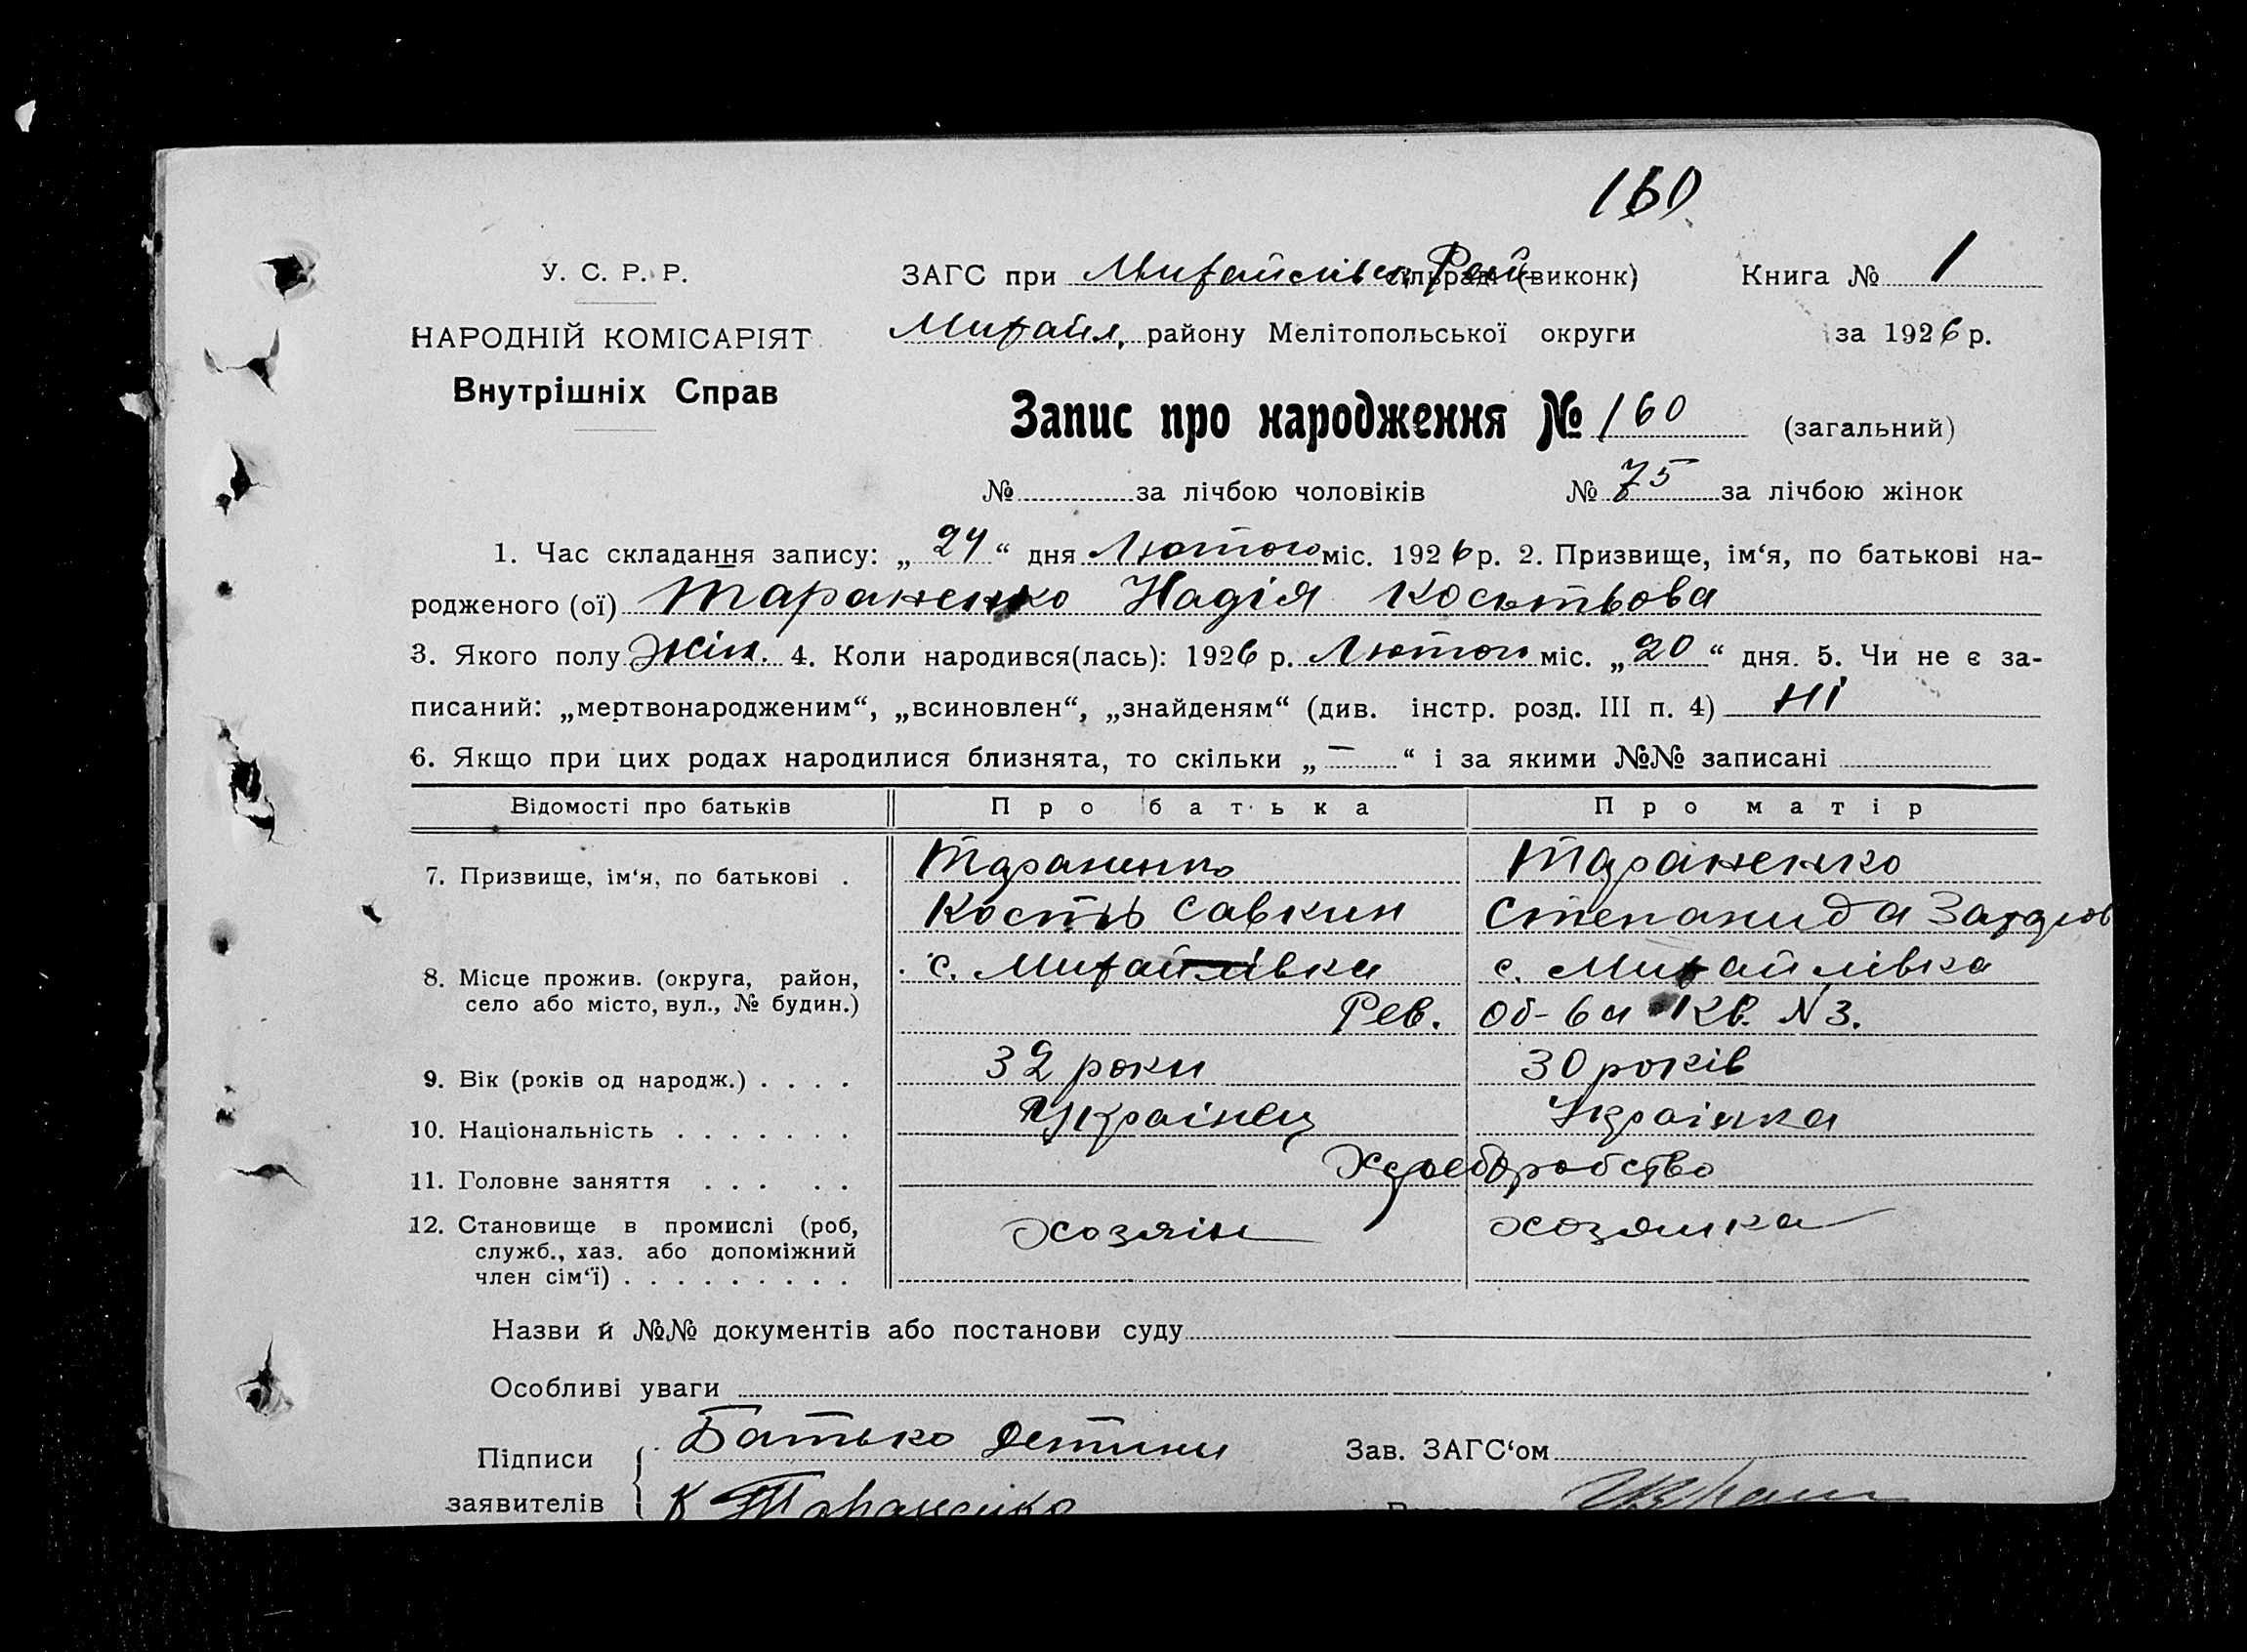 160
У. С. Р. Р.
ЗАГС при Михайлівск. Рай- сільради (виконк)
Книга № 1
НАРОДНІЙ КОМІСАРІЯТ
Михайл. району Мелітопольської округи
за 1926 р.
Внутрішніх Справ
Запис про народження № 160 (загальний)
№ за лічбою чоловіків
№ 75 за лічбою жінок
1. Час складання запису: „24“ дня Лютого міс. 1926 р. 2. Призвище, ім‘я, по батькові на-
родженого (ої) Тараненко Надія Костьова
3. Якого полу Жін. 4. Коли народився(лась): 1926 р. Лютого міс. „20“ дня. 5. Чи не є за-
писаний: „мертвонародженим“, „всиновлен“, „знайденям“ (див. інстр. розд. III п. 4) Ні
6. Якщо при цих родах народилися близнята, то скільки „—“ і за якими №№ записані
Відомості про батьків
Про батька
Про матір
7. Призвище, ім‘я, по батькові .
Тараненко
Тараненко
Кость Савкин
Степанида Захаров
8. Місце прожив. (округа, район,
село або місто, вул., № будин.)
с. Михайлівка
с. Михайлівка
Рев. Об-ва Кв. N 3.
9. Вік (років од народж.) . . . .
32 роки
30 років
10. Національність . . . . . . .
Українец
Українка
11. Головне заняття . . . . .
Хлеборобство
12. Становище в промислі (роб,
служб., хаз. або допоміжний
член сім‘ї) . . . . . . . . .
хозяін
хозяйка
Назви й №№ документів або постанови суду
Особливі уваги
Підписи
заявителів
Батько Детини
К Тараненко
Зав. ЗАГС‘ом